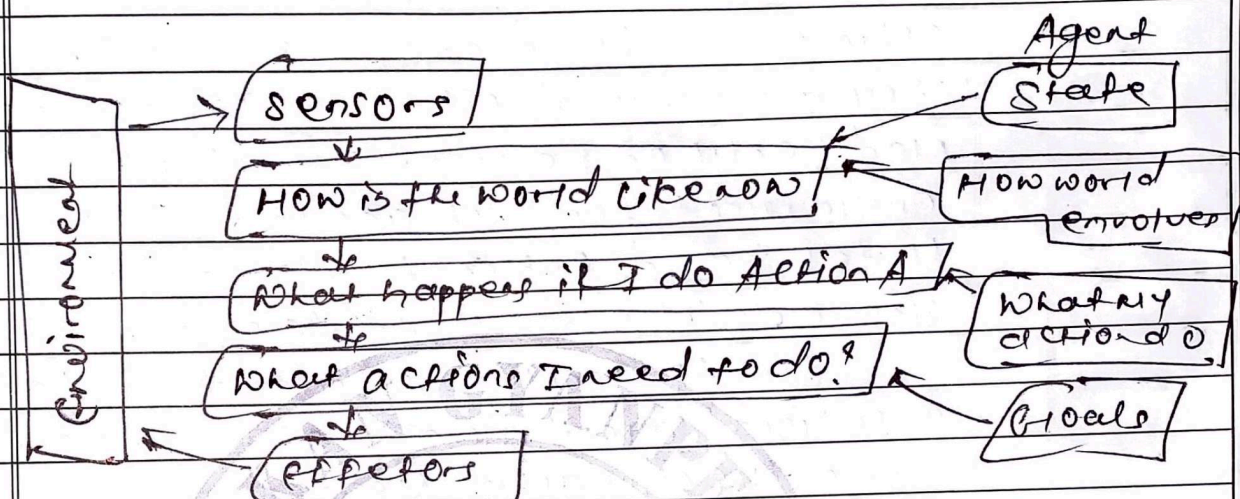 Agent
State
Sensors
How is the world like now!
How world
envolves
What happens if I do Action A
What My
action do
What actions I need to do?
Goals
Effetors
Environment